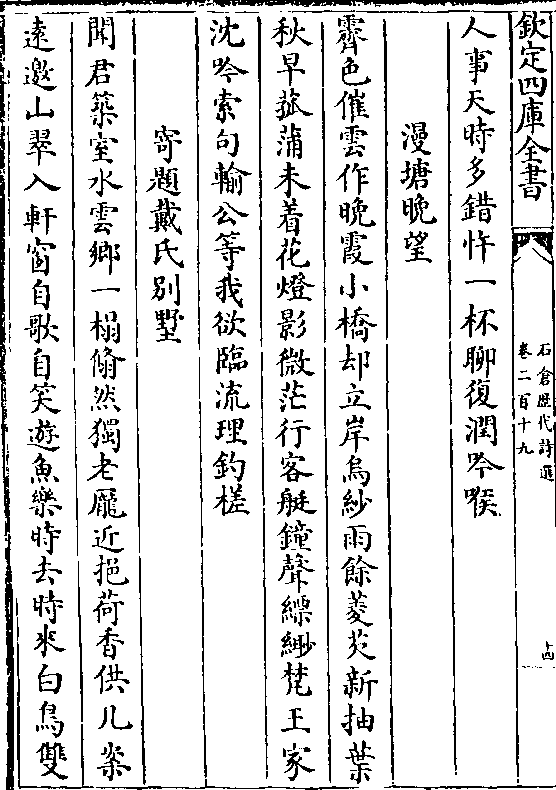 欽定四庫全書
石倉歴代詩選
卷二百十九
十四
人事天時多錯忤一杯聊復潤吟喉
漫塘晚望
霽色催雲作晚霞小橋却立岸烏紗雨餘菱芡新抽葉
秋早菰蒲未着花燈影微茫行客艇鐘聲縹緲梵王家
沈吟索句輸公等我欲臨流理釣槎
寄題戴氏别墅
聞君築室水雲鄉一榻翛然獨老龎近挹荷香供几案
遠邀山翠入軒窗自歌自笑遊魚樂時去時來白鳥雙